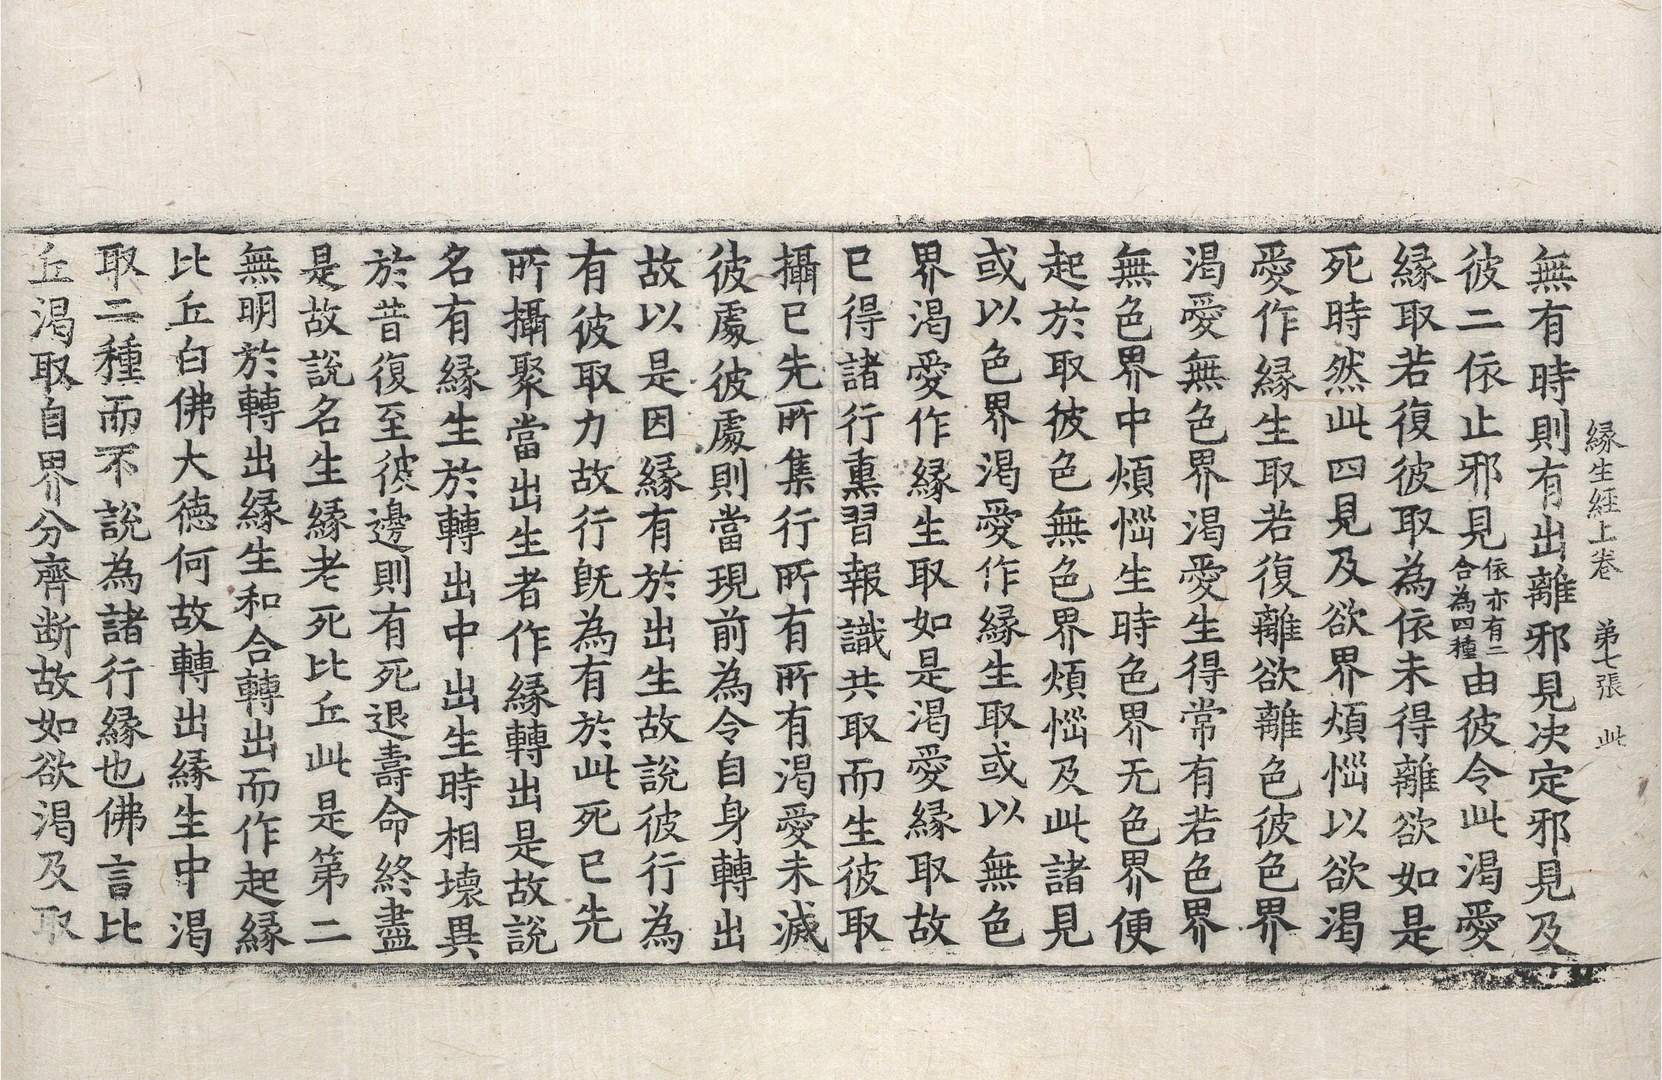 緣生經上卷　第七張　此
無有時則有出離邪見决定邪見及
彼二依止邪見依亦有二合為四種由彼令此渴愛
緣取若復彼取為依未得離欲如是
死時然此四見及欲界煩惱以欲渴
愛作緣生取若復離欲離色彼色界
渴愛無色界渴愛生得常有若色界
無色界中煩惱生時色界无色界便
起於取彼色無色界煩惱及此諸見
或以色界渴愛作緣生取或以無色
界渴愛作緣生取如是渴愛緣取故
已得諸行熏習報識共取而生彼取
攝已先所集行所有所有渴愛未滅
彼處彼處則當現前為令自身轉出
故以是因緣有於出生故說彼行為
有彼取力故行旣為有於此死已先
所攝聚當出生者作緣轉出是故說
名有緣生於轉出中出生時相壞異
於昔復至彼邊則有死退壽命終盡
是故說名生緣老死比丘此是第二
無明於轉出緣生和合轉出而作起緣
比丘白佛大德何故轉出緣生中渴
取二種而不說為諸行緣也佛言比
丘渴取自界分齊断故如欲渴及取